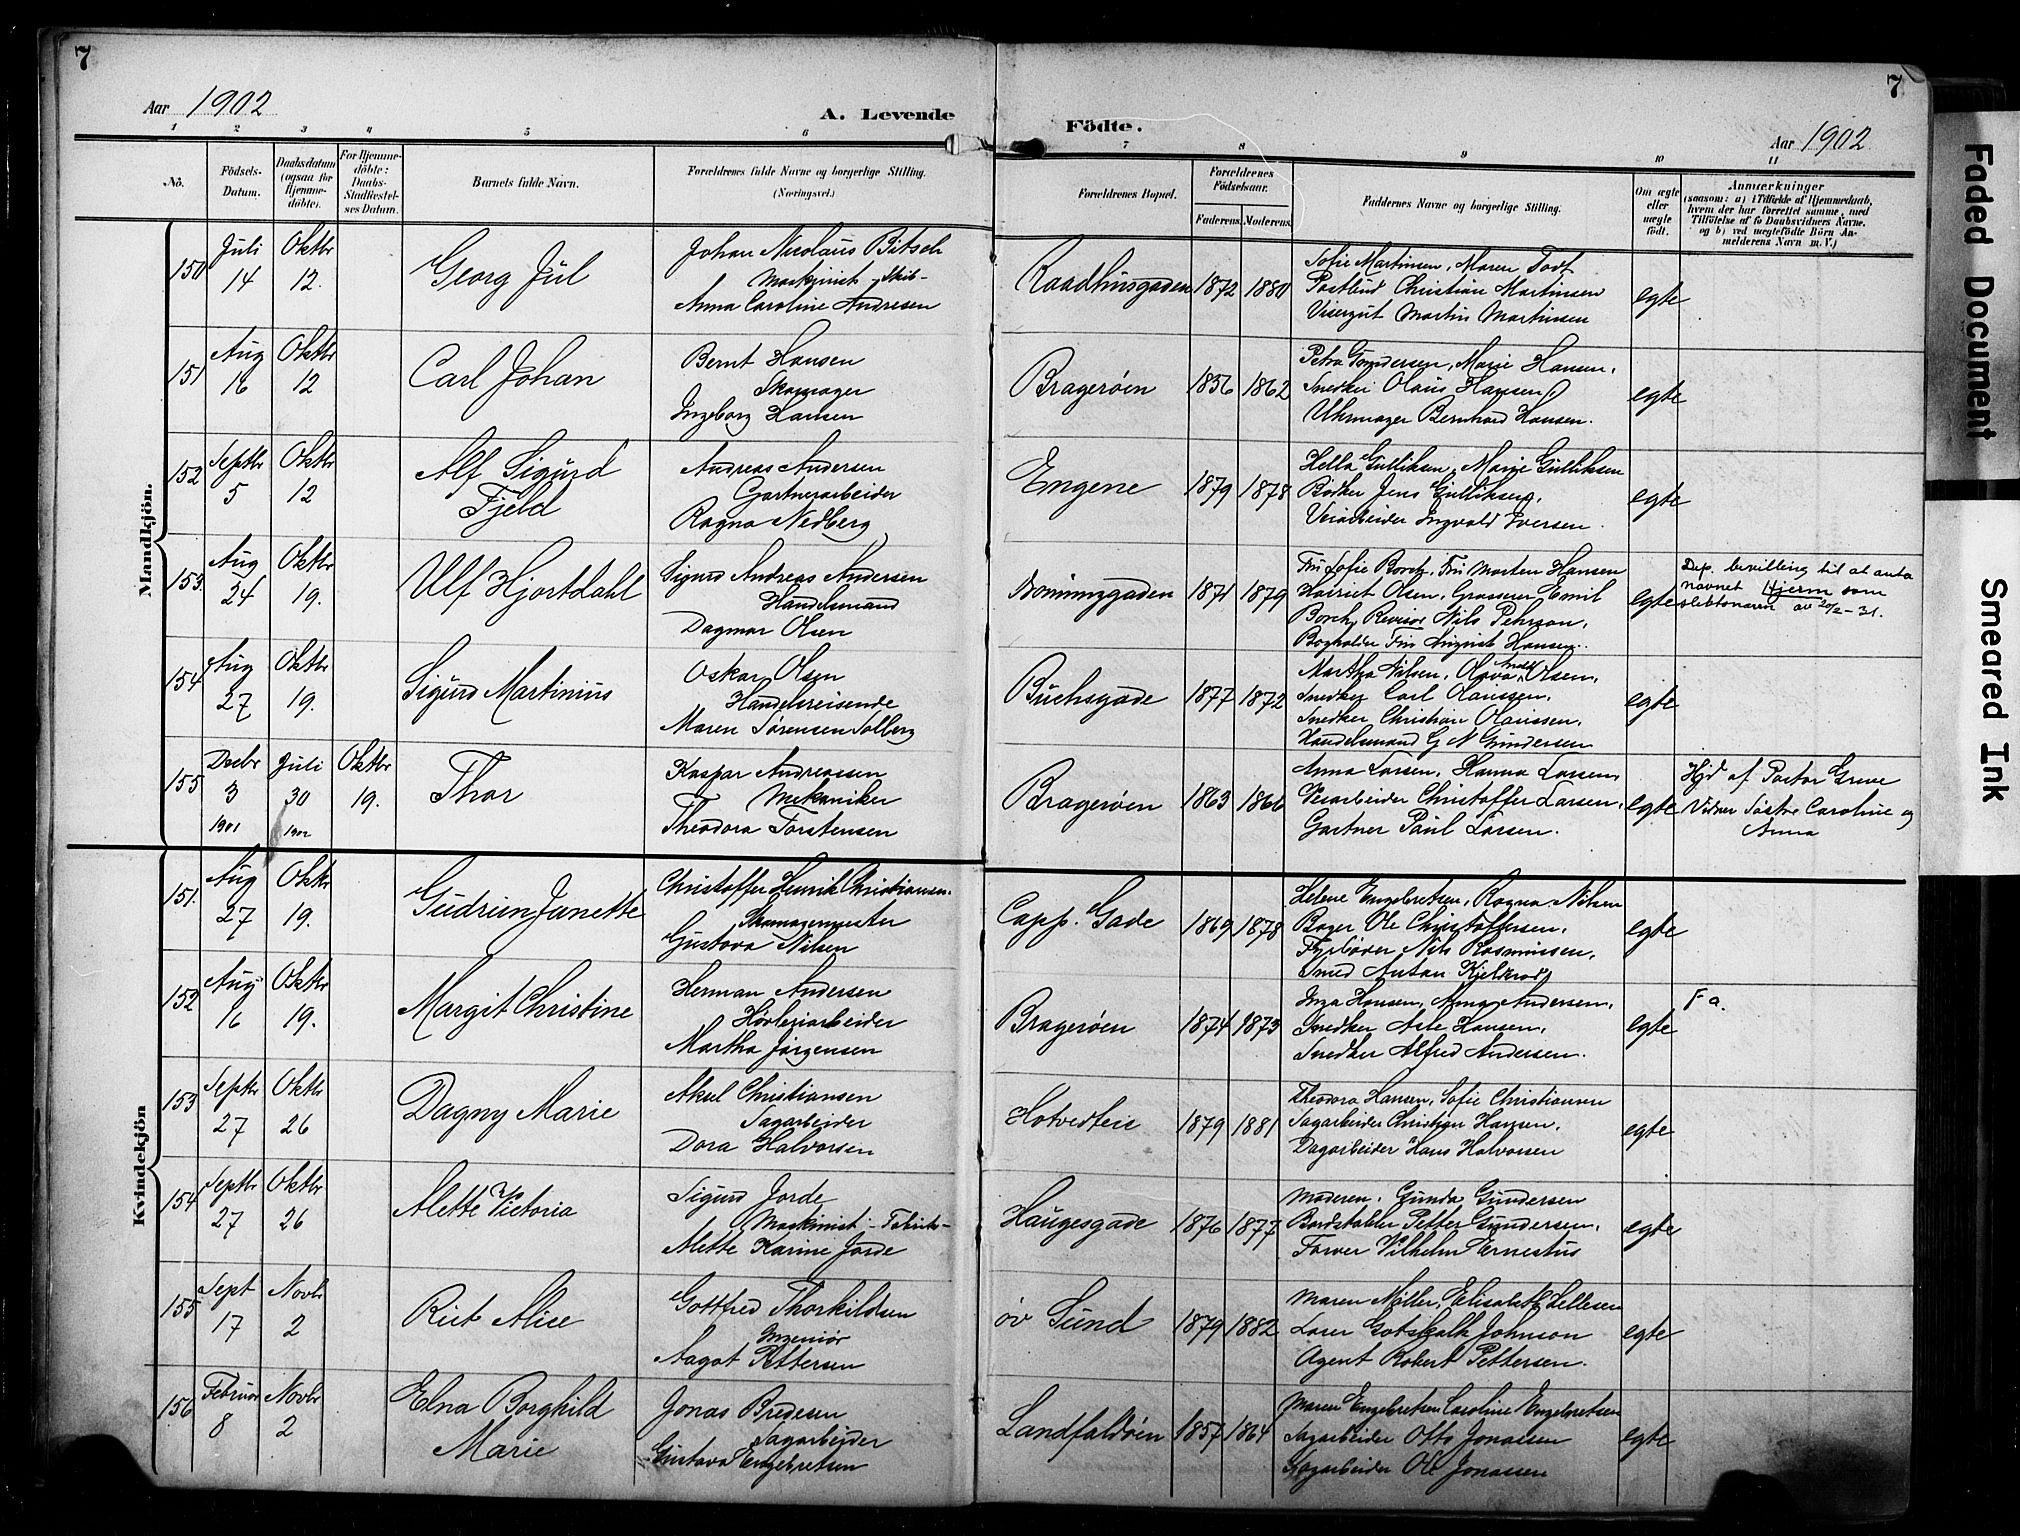 7
7
Aar 1902
A. Levende
Födte.
Aar 1902
1 2 3 4 5 6 7 8 9 10 11
No.
Födsels-Datum.
Daabsdatum (ogsaa for Hjemme-döbte).
For Hjemme-döbte: Daabs-Stadfæstel-ses Datum.
Barnets fulde Navn.
Forældrenes fulde Navne og borgerlige Stilling. (Næringsvei.)
Forældrenes Bopæl.
Forældrenes Födselsaar.
Faderens. Moderens.
Faddernes Navne og borgerlige Stilling.
Om ægte eller uægte födt.
Anmærkninger
(saasom: a) i Tilfælde af Hjemmedaab,
hvem der har forrettet samme, med
Tilföielse af to Daabsvidners Navne.
og b) ved uegtefödte Börn An-
melderens Navn m. V.)
Mandkjön.
150 Juli 14 Oktbr 12. Georg Jul
Johan Nicolaus Bitsch
Maskinist -Skib-
Anna Caroline Andresen
Raadhusgaden 1872 1880
Sofie Martinsen, Maren Todt
Postbud Christian Martinsen
Visergut Martin Martinsen
egte
151 Aug 16 Oktbr 12 Carl Johan
Bernt Hansen
Skomager
Ingeborg Hansen
Bragerøen 1856 1862
Petra Gundersen, Marie Hansen,
Snedker Olaus Hansen
Uhrmager Bernhard Hansen.
egte
152 Septbr 5 Oktbr 12 Alf Sigurd
Fjeld
Andreas Andersen
Gartnerarbeider
Ragna Nedberg
Engene 1879 1878
Hella Gulliksen, Marie Gulliksen
Bødker Jens Gulliksen,
Veiarbeider Ingvald Iversen.
egte
153. Aug 24 Oktbr 19. Ulf Hjortdahl
Sigurd Andreas Andersen
Handelsmand
Dagmar Olsen
1871 1879
Fru Sofie Borch, Fru Morten Hansen
Hairiet Olsen, Grosserer Emil
Borch, Revisor Nils Pehrson,
Bogholder Fin August Hansen.
egte
Dep. bevilling til at anta
navnet Hjerm som
slektsnavn av 20/2-31.
154 Aug 27 Oktbr 19. Sigurd Martinius
Oskar Olsen
Handelsreisende
Maren Sørensen Solberg
Buchsgade 1877 1872
Martha Nilsen, Olava Olsen,
Snedker Carl Olaussen,
Snedker Christian Olaussen,
Handelsmand G N Gundersen
egte
155 Decbr 3 1901 Juli 30 1902 Oktbr 19. Thor
Kaspar Andreassen
Mekaniker
Theodora Torstensen
Bragerøen 1863 1866
Anna Larsen, Hanna Larsen,
Veiarbeider Christoffer Larsen,
Gartner Paul Larsen.
egte
Hjd af Pastor Greve
Vidner Søstre Caroline og
Anna
Kvindekjön
151. Aug 27 Oktbr 19. Gudrun Janette
Christoffer Henrik Christiansen.
Skomagermester
Gustava Nilsen
Capp. Gade 1869 1878
Helene Engebretsen, Ragna Nilsen
Bager Ole Christoffersen,
Fyrbøder Nils Rasmussen,
Smed Anton
egte
152 Aug 16 Oktbr 19. Margit Christine
Herman Andersen
Høvleriarbeider
Martha Jørgensen
Bragerøen 1874 1873
Inga Hansen, Anna Andersen,
Snedker Hansen,
Snedker Alfred Andersen.
egte
Fa.
153 Septbr 27 Oktbr 26 Dagny Marie
Aksel Christiansen
Sagarbeider
Dora Halvorsen
Hotvedteie 1879 1881
Theodora Hansen, Sofie Christiansen
Sagarbeider Christian Hansen,
Dagarbeider Hans Halvorsen
egte
154 Septbr 27 Oktbr 26 Alette Victoria
Sigurd Jorde
Maskinist -Fabrik-
Alette Karine Jorde
Haugesgade 1876 1877
Moderen, Gunda Gundersen
Bordstabler Petter Gundersen,
Farver Vilhelm Ernestus
egte
155 Sept 17 Novbr 2 Rut Alice
Gottfred Thorkildsen
Ingeniør
Aagot Pettersen
øv Sund 1879 1882
Maren Møller, Elisabeth Lellesen
Gotskalk Johnson
Agent Robert Pettersen.
egte
156 Februar 8 Novbr 2 Elna Borghild
Marie
Jonas Bredesen
Sagarbeider
Gustava Engebretsen
Landfaldøen 1857 1864
Maren Engebretsen Caroline Engebretsen
Sagarbeider Otto Jonassen
Sagarbeider Ole Jonassen
egte
Faded Document
Smeared Ink